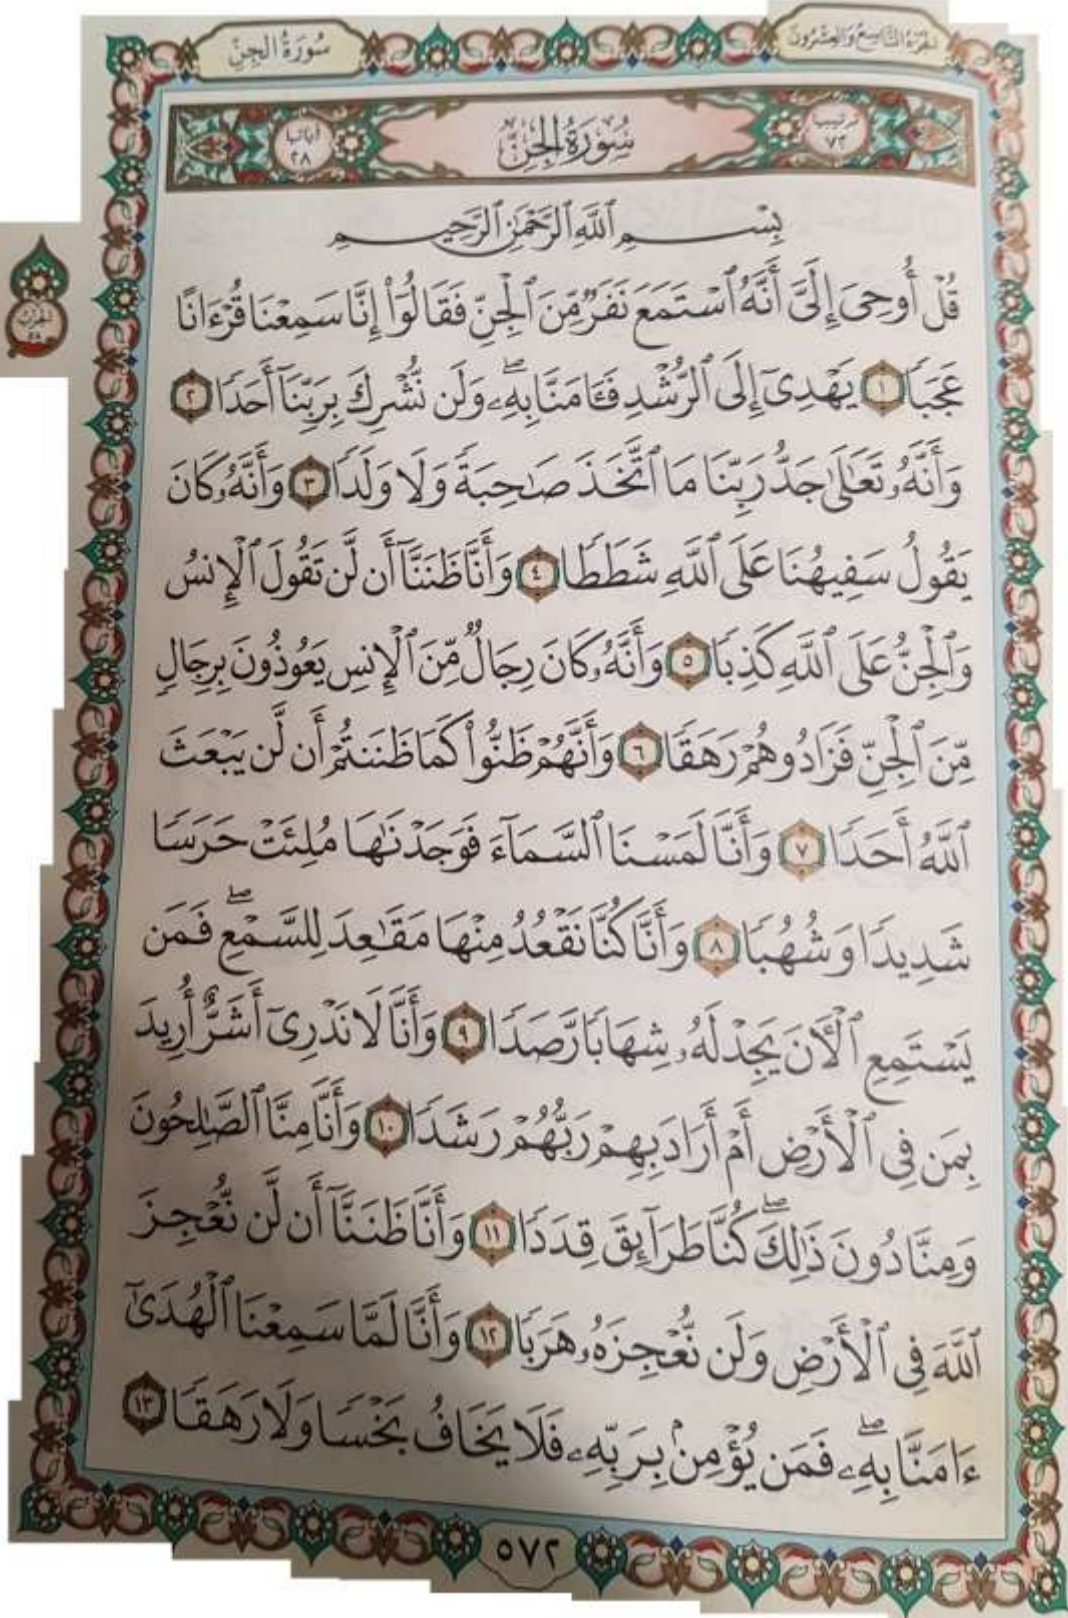 الجزء التاسع والعشرون
سورة الجن
ترتيبها ٧٢
سُورَةُ الجِنِّ
آياتها ٢٨
بِسْمِ ٱللَّهِ ٱلرَّحْمَٰنِ ٱلرَّحِيمِ
قُلْ أُوحِىَ إِلَىَّ أَنَّهُ ٱسْتَمَعَ نَفَرٌ مِّنَ ٱلْجِنِّ فَقَالُوٓا۟ إِنَّا سَمِعْنَا قُرْءَانًا
عَجَبًا ١ يَهْدِىٓ إِلَى ٱلرُّشْدِ فَـَٔامَنَّا بِهِۦۖ وَلَن نُّشْرِكَ بِرَبِّنَآ أَحَدًا ٢
وَأَنَّهُۥ تَعَٰلَىٰ جَدُّ رَبِّنَا مَا ٱتَّخَذَ صَٰحِبَةً وَلَا وَلَدًا ٣ وَأَنَّهُۥ كَانَ
يَقُولُ سَفِيهُنَا عَلَى ٱللَّهِ شَطَطًا ٤ وَأَنَّا ظَنَنَّآ أَن لَّن تَقُولَ ٱلْإِنسُ
وَٱلْجِنُّ عَلَى ٱللَّهِ كَذِبًا ٥ وَأَنَّهُۥ كَانَ رِجَالٌ مِّنَ ٱلْإِنسِ يَعُوذُونَ بِرِجَالٍ
مِّنَ ٱلْجِنِّ فَزَادُوهُمْ رَهَقًا ٦ وَأَنَّهُمْ ظَنُّوا۟ كَمَا ظَنَنتُمْ أَن لَّن يَبْعَثَ
ٱللَّهُ أَحَدًا ٧ وَأَنَّا لَمَسْنَا ٱلسَّمَآءَ فَوَجَدْنَٰهَا مُلِئَتْ حَرَسًا
شَدِيدًا وَشُهُبًا ٨ وَأَنَّا كُنَّا نَقْعُدُ مِنْهَا مَقَٰعِدَ لِلسَّمْعِۖ فَمَن
يَسْتَمِعِ ٱلْـَٔانَ يَجِدْ لَهُۥ شِهَابًا رَّصَدًا ٩ وَأَنَّا لَا نَدْرِىٓ أَشَرٌّ أُرِيدَ
بِمَن فِى ٱلْأَرْضِ أَمْ أَرَادَ بِهِمْ رَبُّهُمْ رَشَدًا ١٠ وَأَنَّا مِنَّا ٱلصَّٰلِحُونَ
وَمِنَّا دُونَ ذَٰلِكَۖ كُنَّا طَرَآئِقَ قِدَدًا ١١ وَأَنَّا ظَنَنَّآ أَن لَّن نُّعْجِزَ
ٱللَّهَ فِى ٱلْأَرْضِ وَلَن نُّعْجِزَهُۥ هَرَبًا ١٢ وَأَنَّا لَمَّا سَمِعْنَا ٱلْهُدَىٰٓ
ءَامَنَّا بِهِۦۖ فَمَن يُؤْمِنۢ بِرَبِّهِۦ فَلَا يَخَافُ بَخْسًا وَلَا رَهَقًا ١٣
الحزب
٥٧٢